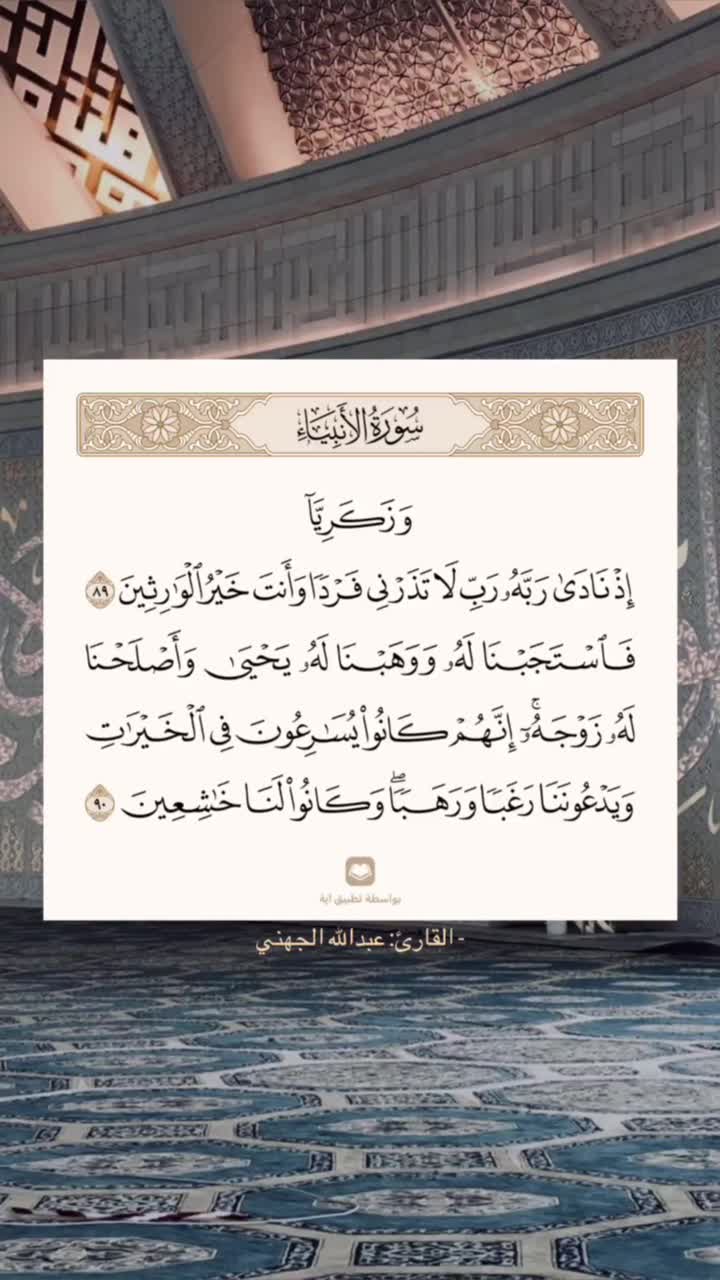 سُورَةُ الأَنبِيَاءِ
وَزَكَرِيَّآ
إِذْ نَادَىٰ رَبَّهُۥ رَبِّ لَا تَذَرْنِى فَرْدًا وَأَنتَ خَيْرُ ٱلْوَٰرِثِينَ ٨٩
فَٱسْتَجَبْنَا لَهُۥ وَوَهَبْنَا لَهُۥ يَحْيَىٰ وَأَصْلَحْنَا
لَهُۥ زَوْجَهُۥٓ ۚ إِنَّهُمْ كَانُوا۟ يُسَٰرِعُونَ فِى ٱلْخَيْرَٰتِ
وَيَدْعُونَنَا رَغَبًا وَرَهَبًا ۖ وَكَانُوا۟ لَنَا خَٰشِعِينَ ٩٠
بواسطة تطبيق آية
- القارئ: عبدالله الجهني